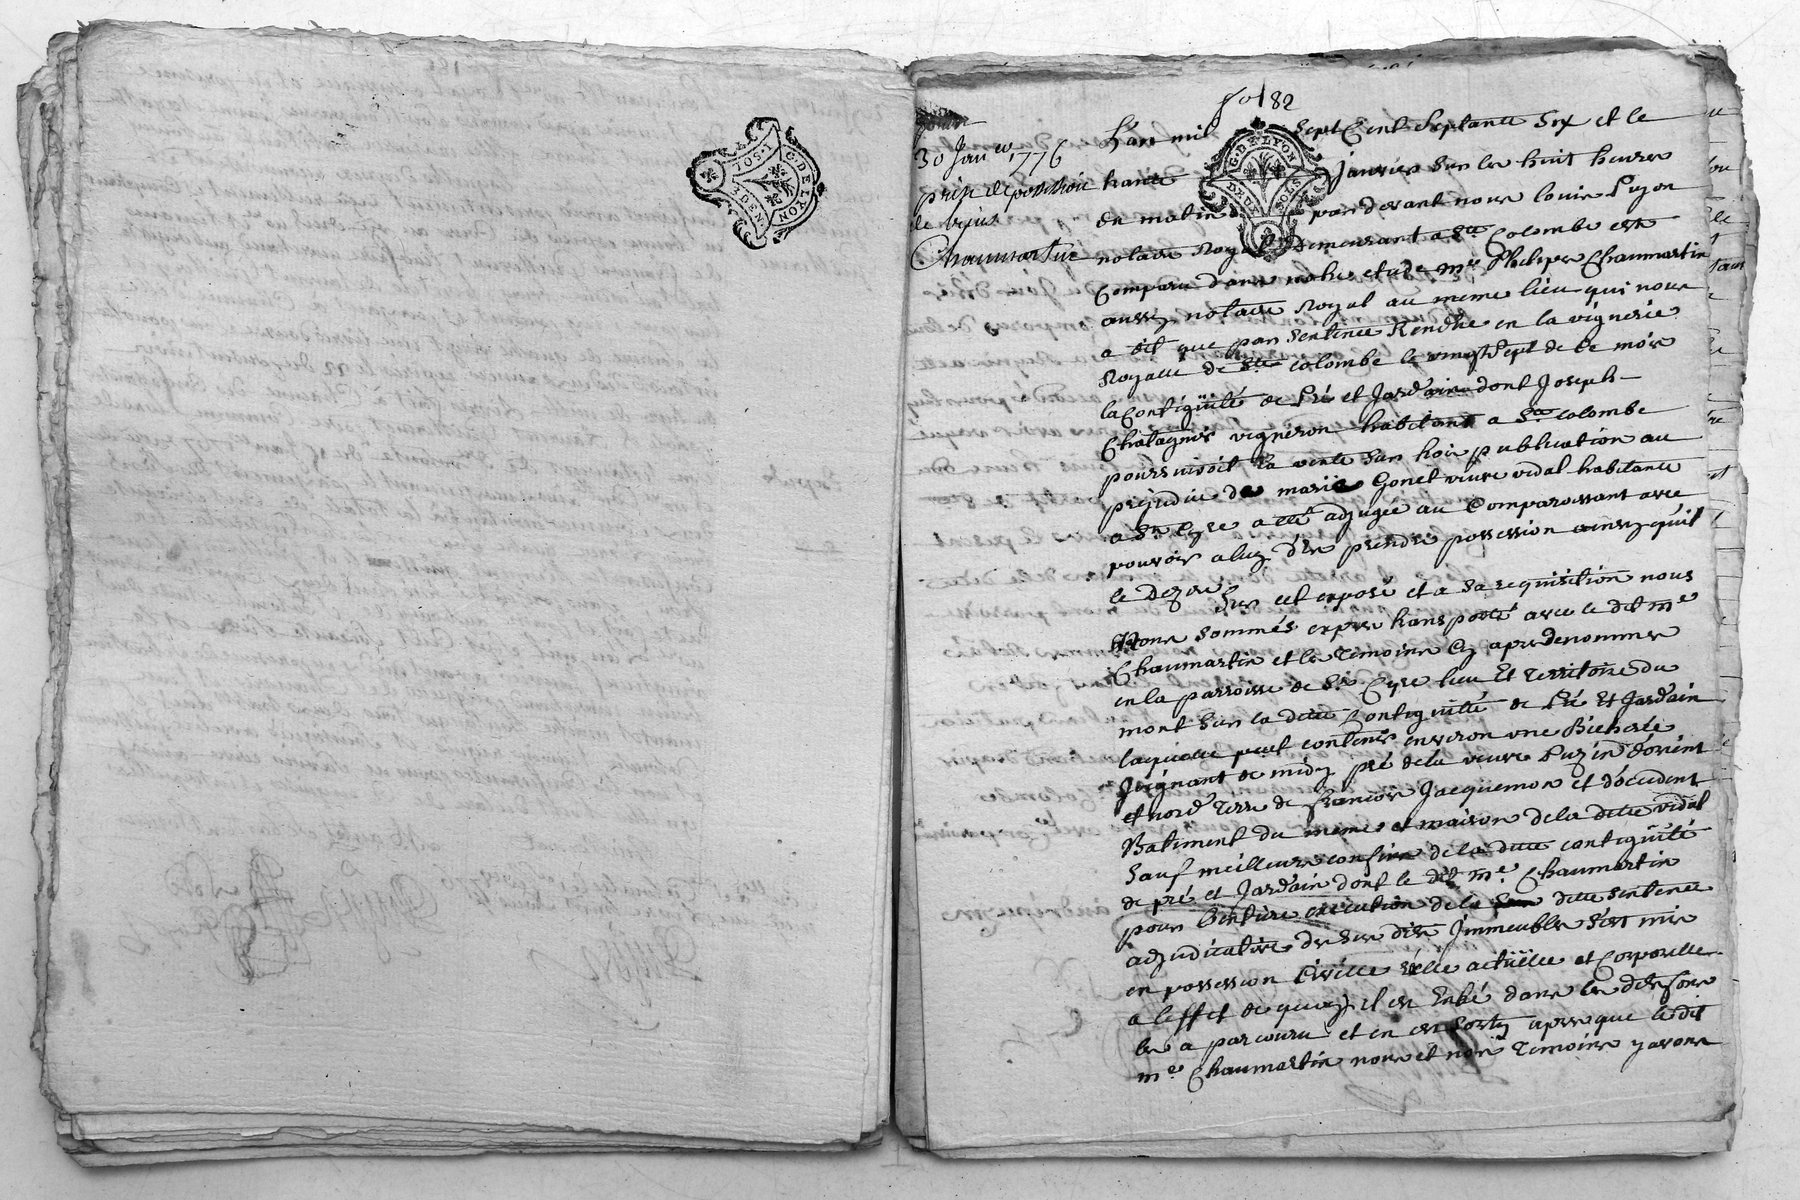 G. DE LYON
1. SOL
DEN
fo 182
30 Janer 1776
prise de possession
le sieur
Chaumartin
L'an mil sept Cent Septante Six et le
trante janvier Sur les huit heures
du matin pardevant nous louis Pujon
notaire Royal Demeurant a Ste Colombe est
Comparu dans notre etude me Philipe Chaumartin
aussy notaire Royal au meme lieu qui nous
a dit que par Sentence Rendüe en la viguerie
Royalle de Ste Colombe le vingt Sept de ce mois
la Contiguité de Pré et Jardin dont Joseph
Chatagnié vigneron habitant a Ste Colombe
poursuivoit la vente Sur trois publication au
prejudice de marie Gonet veuve vidal habitante
a St Cyre a eté adjugée au Comparoissant avec
pouvoir a luy d'en prendre possession ainsy qu'il
le Dezire
Sur cet exposé et a Sa requisition nous
Nous sommés exprès transporté avec le dit me
Chaumartin et les Temoins Cy apres denommés
en la parroisse de St Cyre lieu Et Territoire du
mont Sur la ditte Contiguité de Pré Et Jardin
laquelle peut contenir environ une Bicherée
Joignant de midy pré de la veuve Puzin d'orient
et nord Terre de francois Jacquemon et d'occident
Batiment du meme et maison de la ditte vidal
Sauf meilleurs confins de la ditte contiguité
de pré et Jardin dont le dit me Chaumartin
pour l'entiere execution de la ditte Sentence
adjudicative des Sus dits Immeubles S'est mis
en possession Civille réelle actüelle et Corporelle
a l'effet de quoy il est Entré dans les dits fons
les a parcouru et en est Sorty apres que le dit
me Chaumartin nous et nos Temoins y avons
G. DE LYON
DEUX SOLS